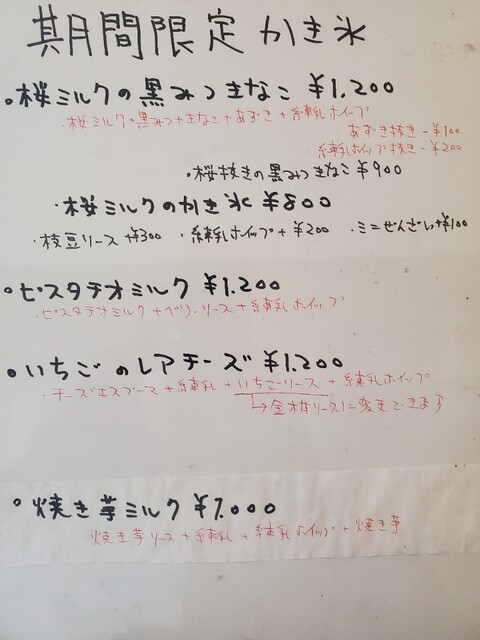 期間限定 かき氷
桜ミルクの黒みつきなこ ¥1.200
・桜ミルク+黒みつ+きなこ+あずき+練乳ホイップ
あずき抜き-¥100
練乳ホイップ抜き-¥200
・桜抜きの黒みつきなこ ¥900
・桜ミルクのかき氷 ¥800
・枝豆ソース+¥300 ・練乳ホイップ+¥200 ・ミニぜんざい+¥100
ピスタチオミルク ¥1.200
・ピスタチオミルク+ベリーソース+練乳ホイップ
いちごのレアチーズ ¥1.200
・チーズエスプーマ+練乳+いちごソース+練乳ホイップ
→金柑ソースに変更できます
焼き芋ミルク ¥1.000
焼き芋ソース+練乳+練乳ホイップ+焼き芋